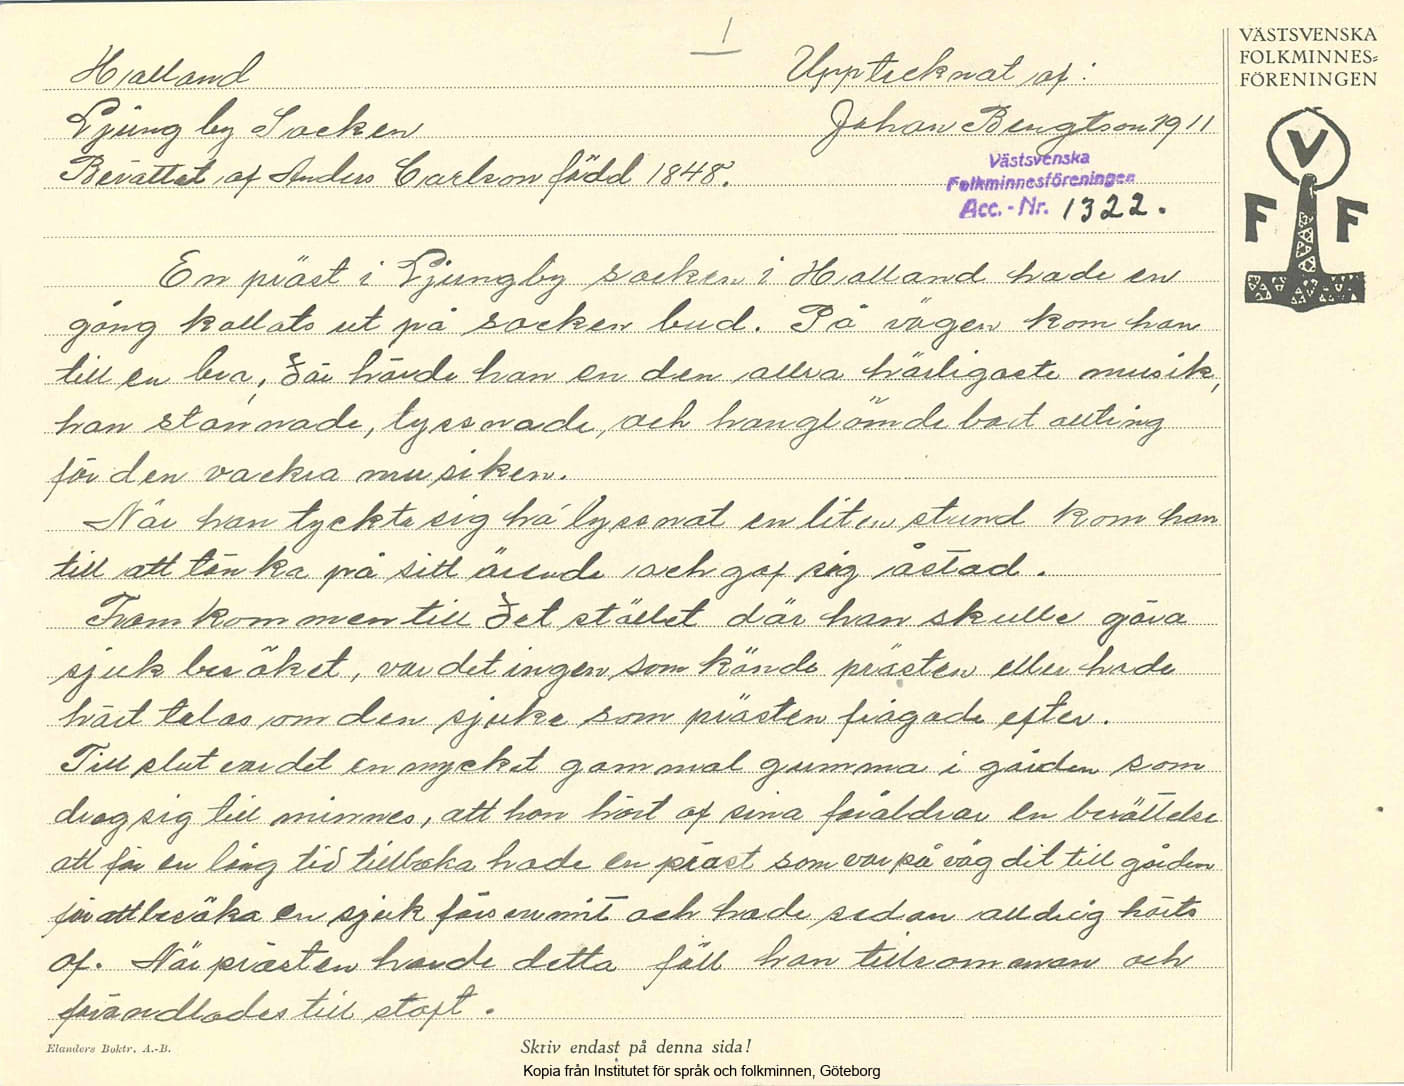 1
Halland
Upptecknat af:
Ljungby Socken
Johan Bengtson 1911
Berättat af Anders Carlson född 1848.
Västsvenska
Folkminnesföreningen
Acc.-Nr. 1322.
VÄSTSVENSKA
FOLKMINNES=
FÖRENINGEN
V
F F
En präst i Ljungby socken i Halland hade en
gång kallats ut på socken bud. På vägen kom han
till en bro, där hörde han en den allra härligaste musik,
han stannade, lyssnade, och han glömde bort allting
för den vackra musiken.
När han tyckte sig ha lyssnat en liten stund kom han
till att tänka på sitt ärende och gaf sig åstad.
Framkommen till det stället där han skulle göra
sjuk besöket, var det ingen som kände prästen eller hade
hört talas om den sjuke som prästen frågade efter.
Till slut var det en mycket gammal gumma i gården som
drog sig till minnes, att hon hört af sina föräldrar en berättelse
att för en lång tid tillbaka hade en präst som var på väg dit till gården
för att besöka en sjuk försvunnit och hade sedan alldrig hörts
af. När prästen hörde detta föll han tillsamman och
förvandlades till stoft.
Elanders Boktr. A.-B.
Skriv endast på denna sida!
Kopia från Institutet för språk och folkminnen, Göteborg